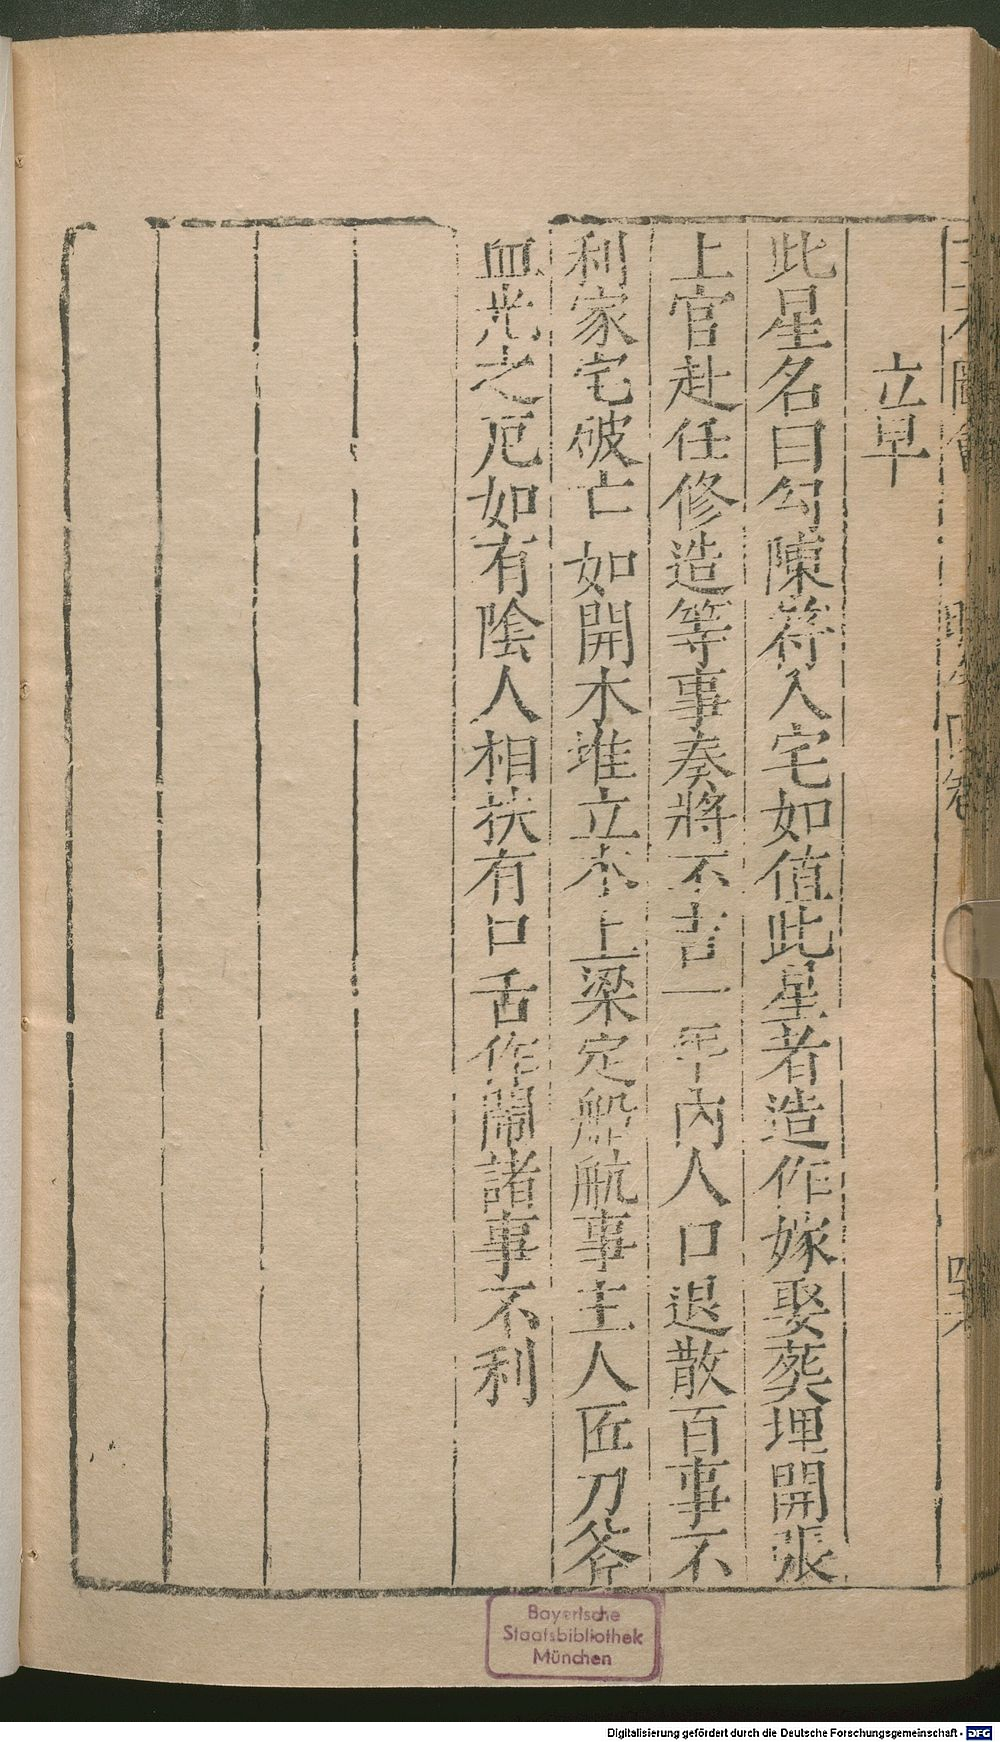 立早
此星名曰勾陳符入宅如值此星者造作嫁娶葬埋開張
上官赴任修造等事奏將不吉一年內人口退散百事不
利家宅破亡如開木堆立木上梁定船航事主人匠刀斧
血光之厄如有陰人相扶有口舌作鬧諸事不利
三才圖會 時令四卷 四六
Bayerische
Staatsbibliothek
München
Digitalisierung gefördert durch die Deutsche Forschungsgemeinschaft - DFG